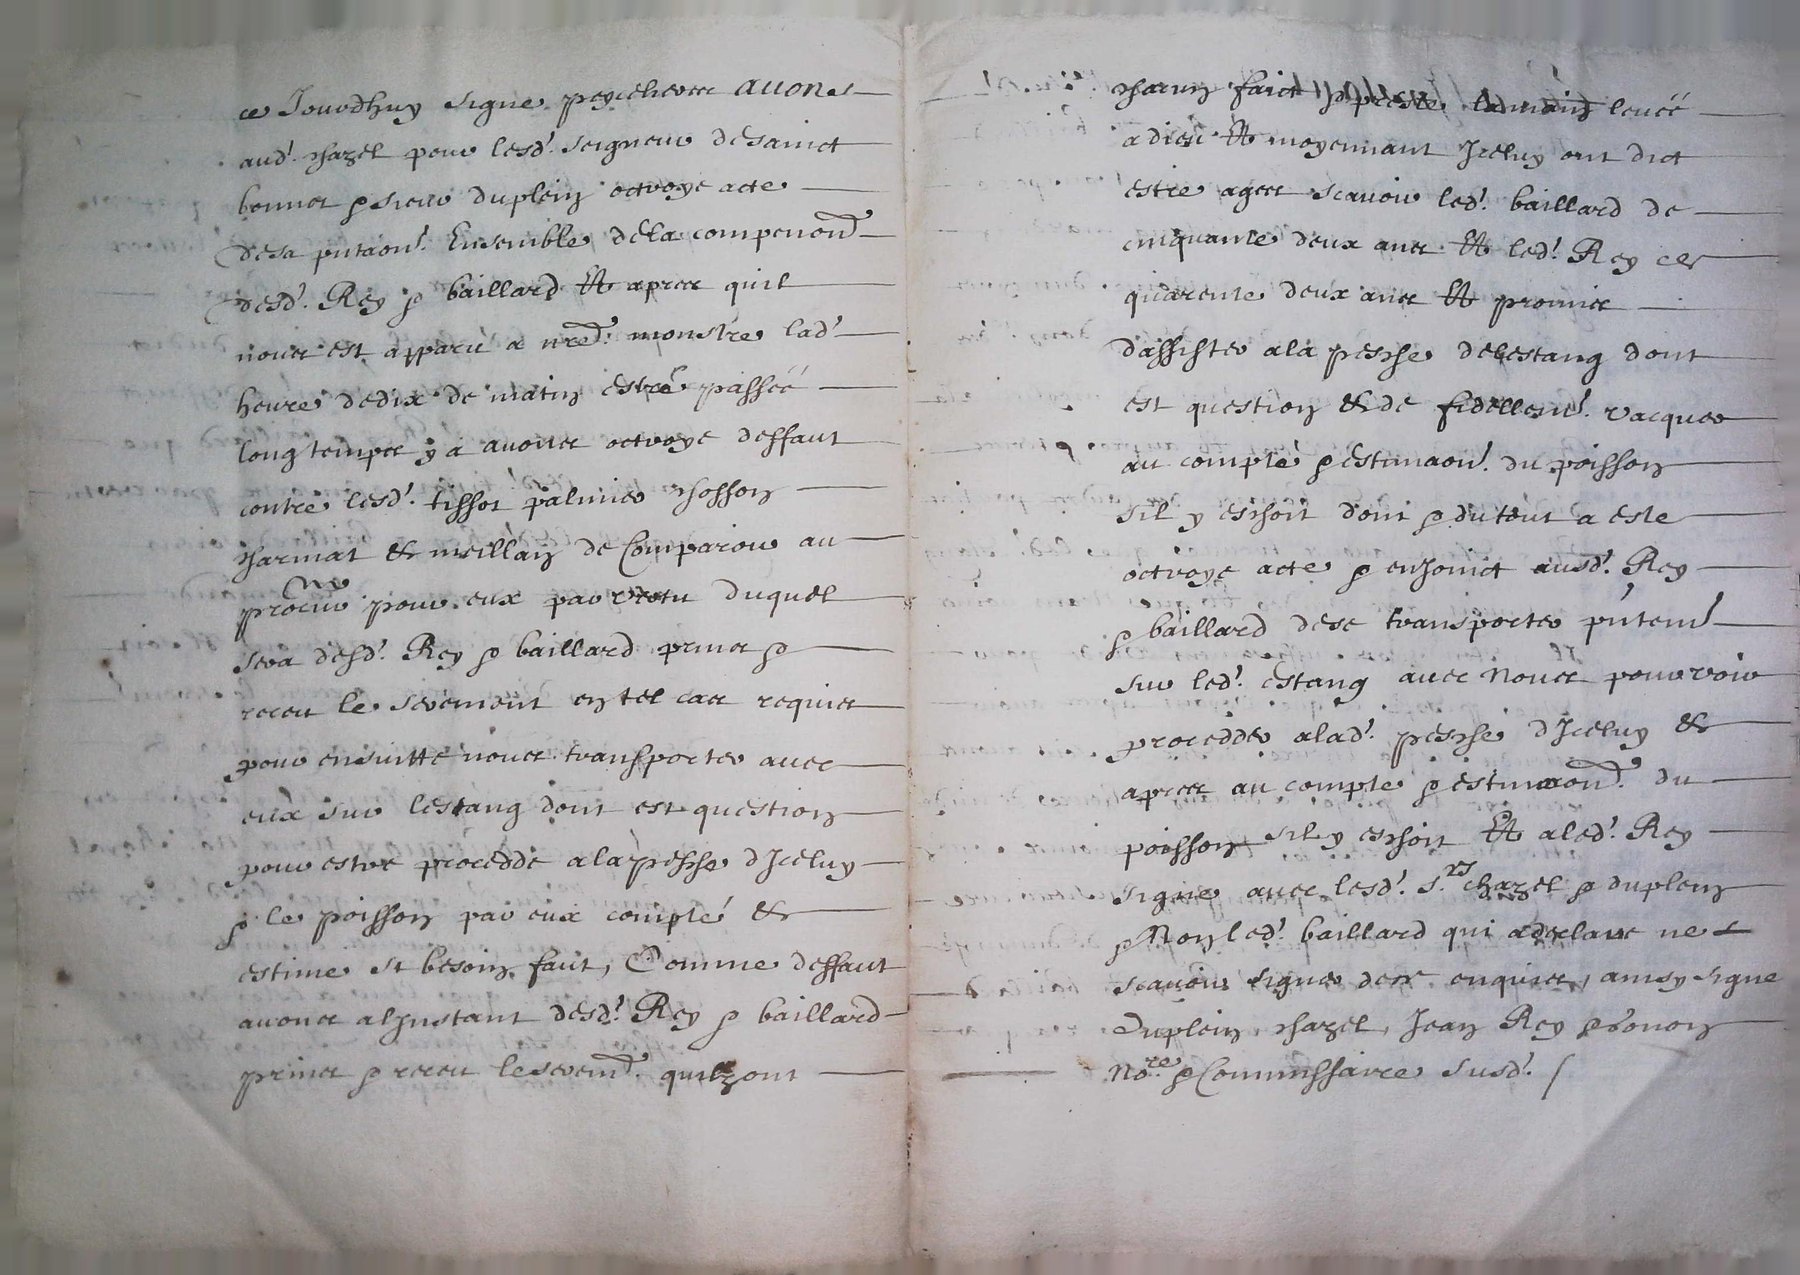 ce Jourdhuy signe peyrelieres avons
aud.t chazel pour lesd.t seigneur de sainct
bonnet & sieur duplein octroye acte
de sa pñtaon.t Ensemble de la comparõn
desd.t Rey & baillard Et apres quil
nous est apparu a nre d.e monstre lad.t
heure de dix de matin estre passéé
long temps y a avons octroye deffaut
contre lesd.t tissot palmier chosson
charmat & meillan de Comparoir au
procur pour eux par vertu duquel
sera desd.t Rey & baillard prins &
receu le serement en tel cas requis
pour ensuitte nous transporter avec
eux sur lestang dont est question
pour estre procedde a la pesche d'Iceluy
& le poisson par eux compté &
estime si besoin faut, Comme deffaut
avons a l'Instant desd.t Rey & baillard
prins & receu le serem.t quilz ont
chacun faict & preste la main levéé
a dieu Et moyennant Iceluy ont dict
estre ages scavoir led.t baillard de
cinquante deux ans Et led.t Rey de
quarente deux ans Et promis
d'assister a la pesche de lestang dont
est question & de fidellem.t vacquer
au compte & estimaon.t du poisson
sil y eschoit dont & du tout a este
octroye acte & enjoinct ausd.t Rey
& baillard de se transporter pñtem.t
sur led.t estang avec Nous pour voir
procedder a lad.t pesche d'Iceluy &
apres au compte & estimaon du
poisson sil y eschoit Et a led.t Rey
signe avec lesd.t S.rs chazel & duplein
& Non led.t baillard qui a declare ne
scavoir signer de ce enquis, ainsy signe
Duplein, chazel, Jean Rey &
No.re & Commissaire susd.t /